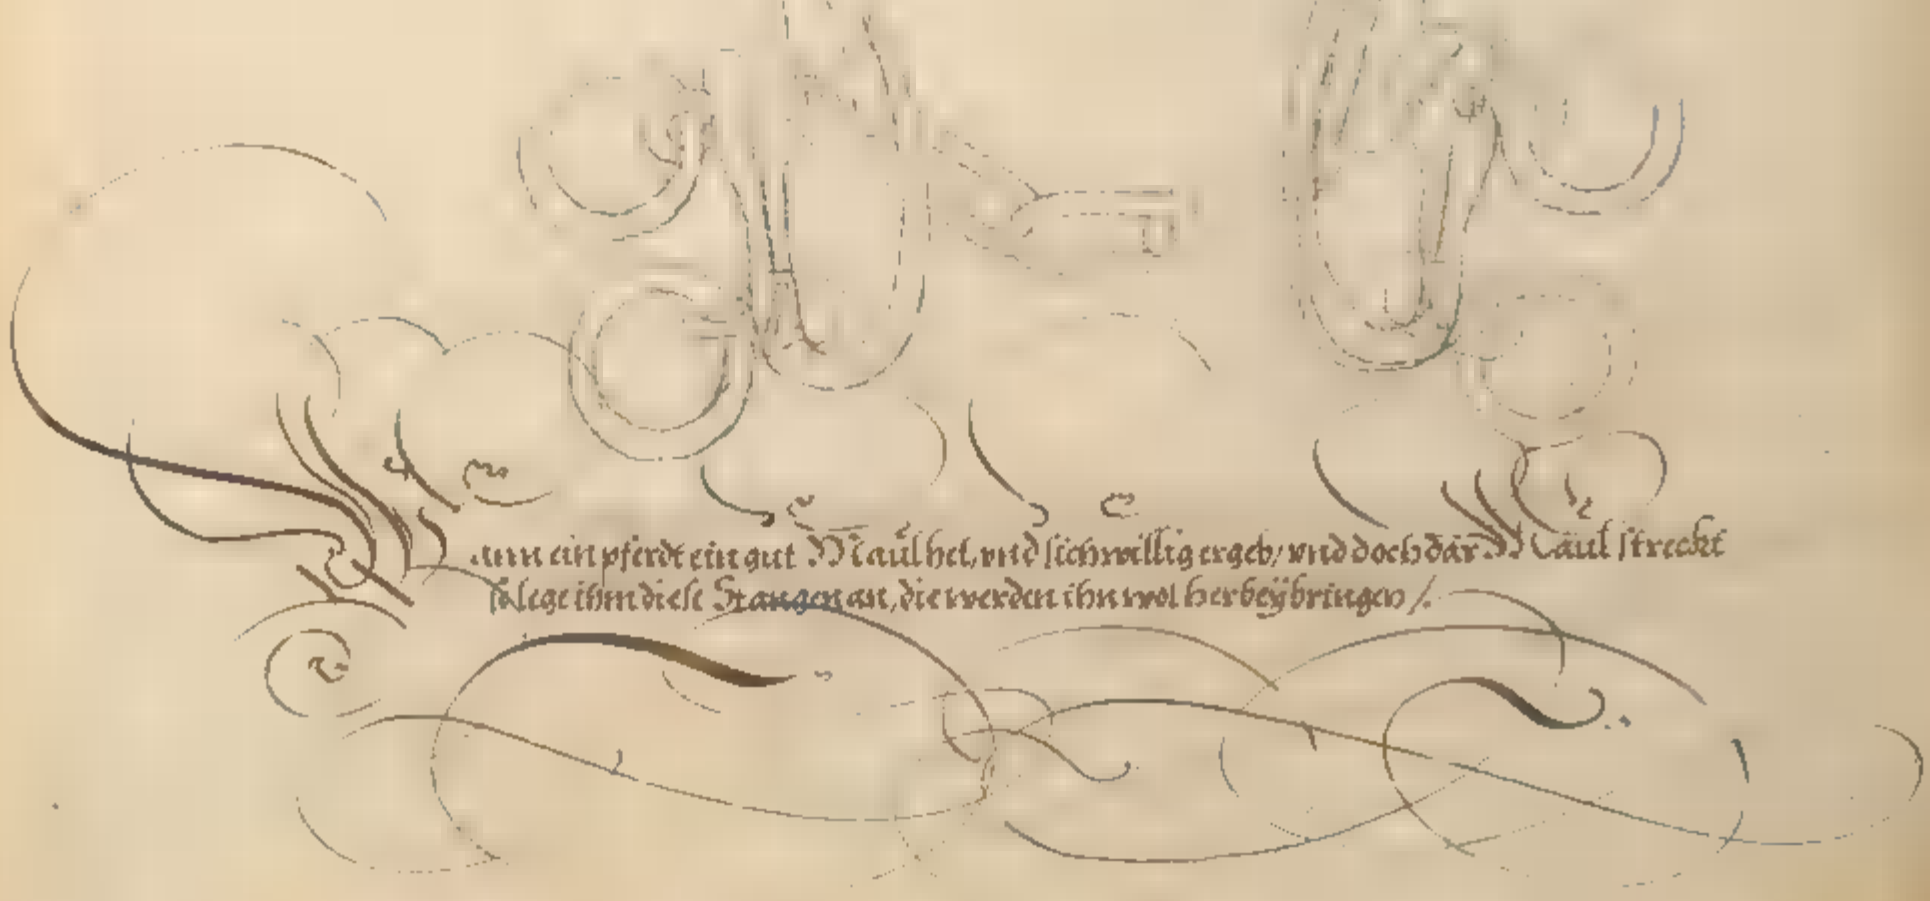 Wann ein pferdt ein gut Maul het, vnd sich willig ergeb, vnd doch dar Maul streckt
so lege ihm diese Stangen an, die werden ihn wol herbeÿ bringen /.